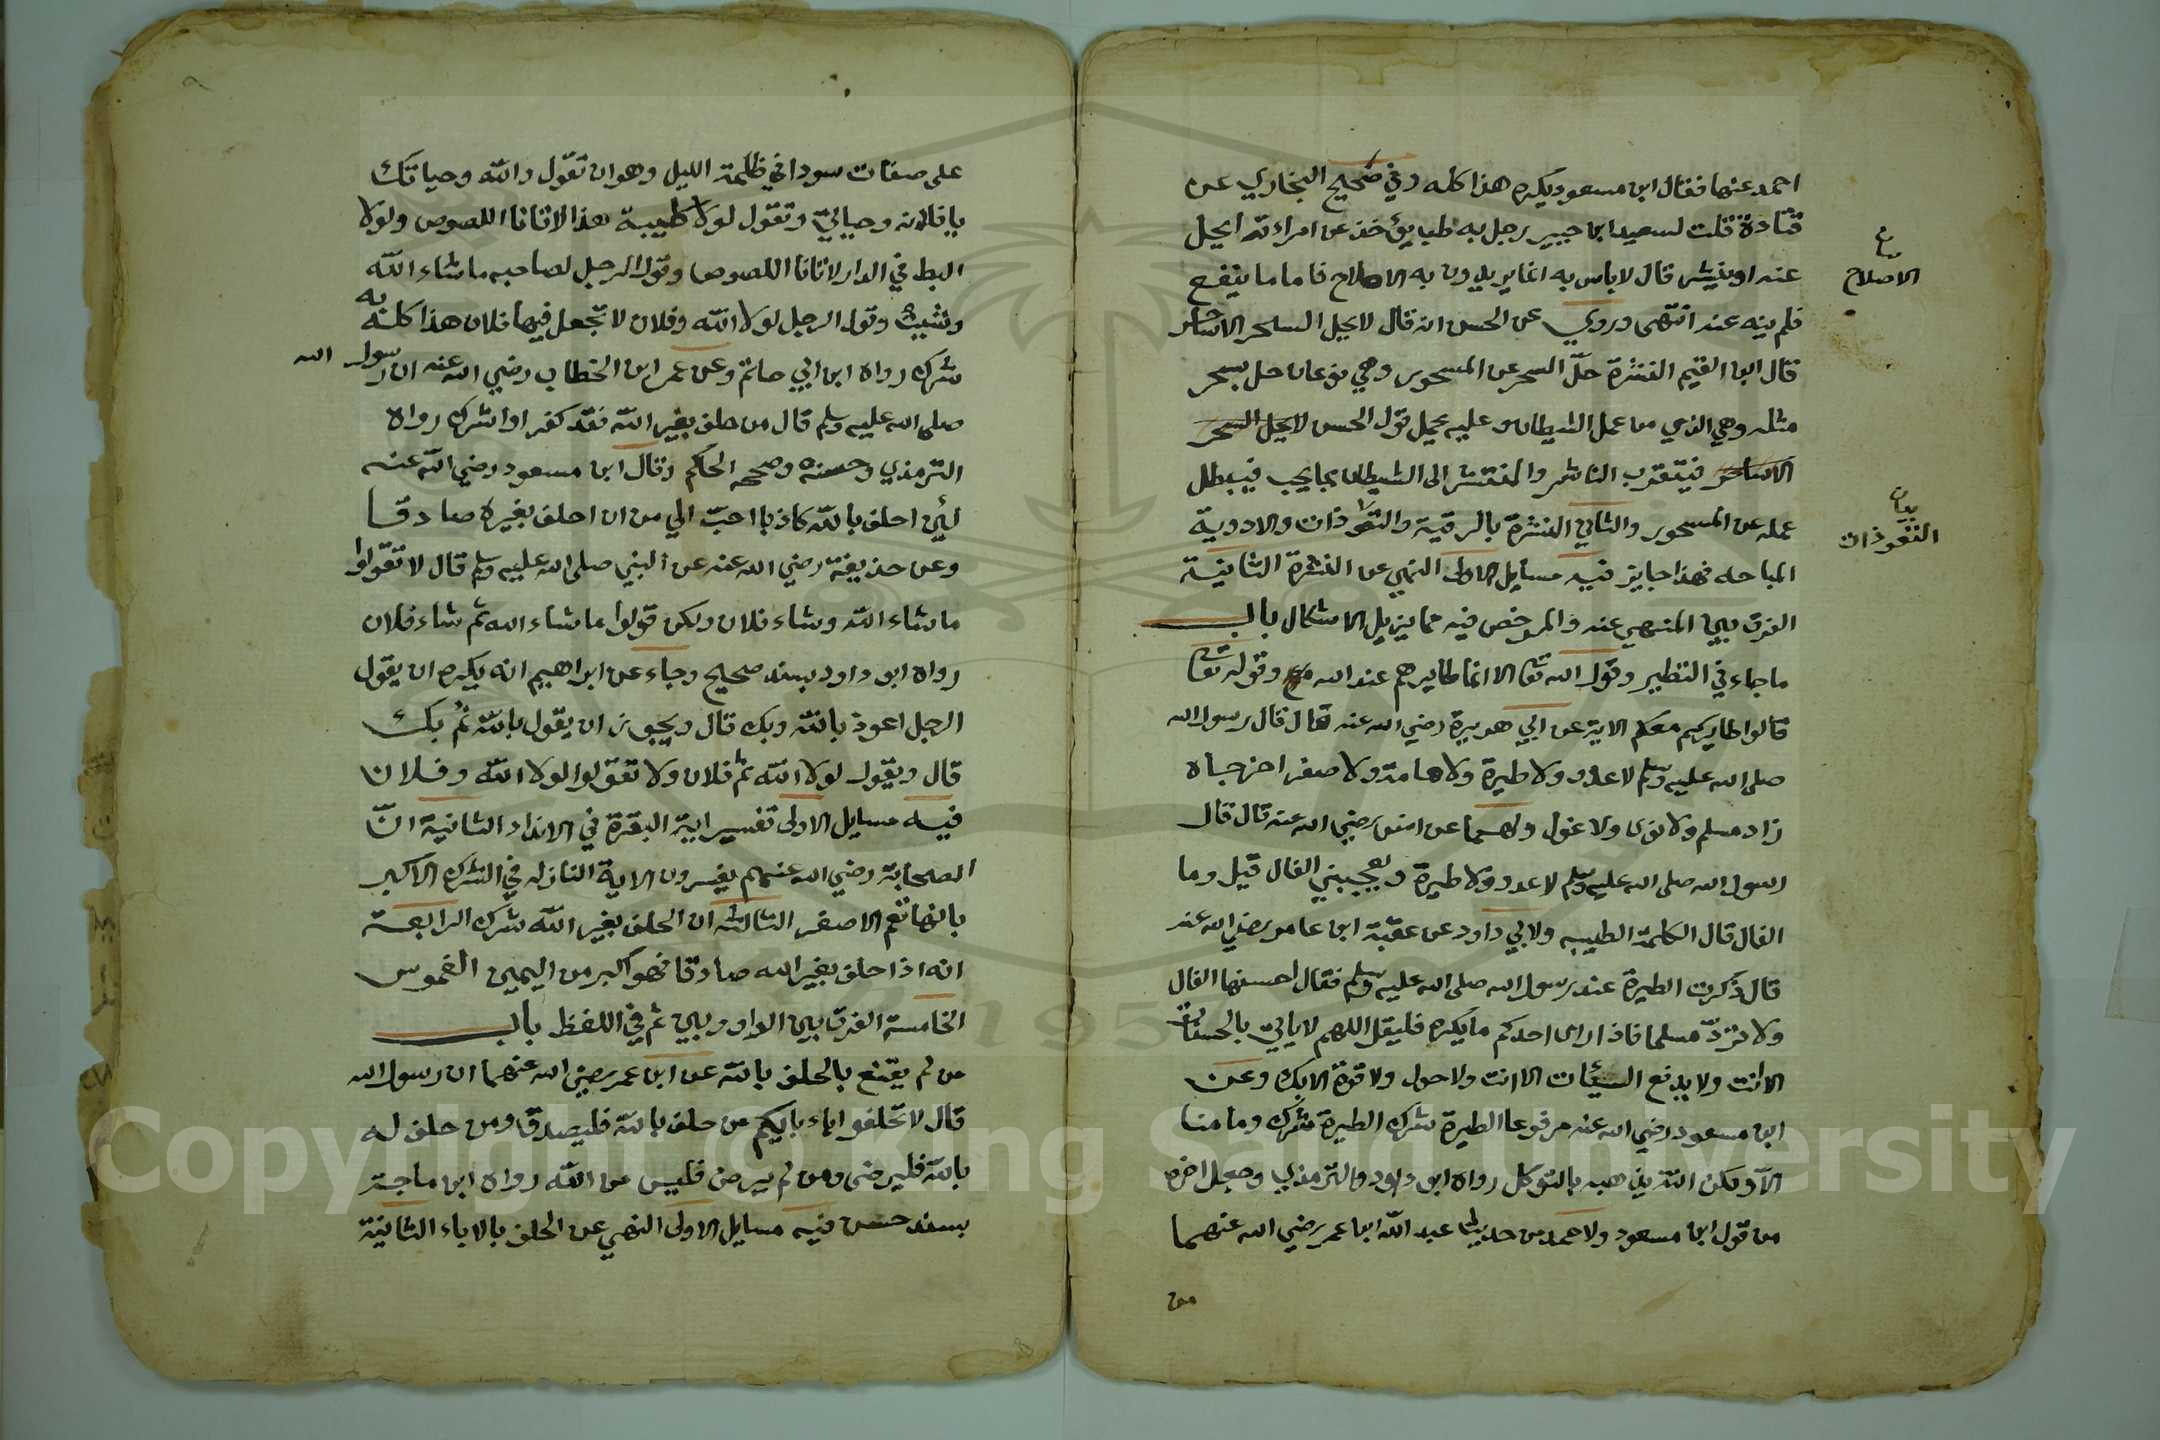 احمد عنها فقال ابن مسعود يكره هذا كله وفي صحيح البخاري عن
قتادة قلت لسعيد ابن جبير رجل به طب يؤخذ عن امراءته ايحل
عنه او ينشر قال لا باس به انما يريدون به الاصلاح فاما ما ينفع
فلم ينه عنه انتهى وروي عن الحسن انه قال لا يحل السحر الا ساحر
قال ابن القيم النشرة حلّ السحر عن المسحور وهي نوعان حل بسحر
مثله وهي الذي من عمل الشيطان وعليه يحمل قول الحسن لا يحل السحر
الا ساحر فيتقرب الناشر والمنتشر الى الشيطان بما يحب فيبطل
عمله عن المسحور والثاني النشرة بالرقية والتعوذات والادوية
المباحه فهذا جايز فيه مسايل الاولى النهي عن النشرة الثانية
الفرق بين المنهي عنه والمرخص فيه مما يزيل الاشكال باب
ما جاء في التطير وقول الله تعا الا انما طايرهم عند الله وقوله تعا
قالوا طايركم معكم الاية عن ابي هريرة رضي الله عنه قال قال رسول الله
صلى الله عليه وسلم لا عدوى ولا طيرة ولا هامة ولا صفر اخرجاه
زاد مسلم ولا نوى ولا غول ولهما عن انس رضي الله عنه قال قال
رسول الله صلى الله عليه وسلم لا عدوى ولا طيرة ويعجبني الفال قيل وما
الفال قال الكلمة الطيبه ولابي داود عن عقبة ابن عامر رضي الله عنه
قال ذكرت الطيرة عند رسول الله صلى الله عليه وسلم فقال احسنها الفال
ولا تردّ مسلما فاذا راى احدكم ما يكره فليقل اللهم لا ياتي بالحسنات
الا انت ولا يدفع السيئات الا انت ولا حول ولا قوة الا بك وعن
ابن مسعود رضي الله عنه مرفوعا الطيرة شرك الطيرة شرك وما منا
الاّ ولكن الله يذهبه بالتوكل رواه ابو داود والترمذي وجعل اخره
من قول ابن مسعود ولاحمد من حديث عبد الله ابن عمر رضي الله عنهما
من
بيان
الاصلاح
بيان
التعوذات
على صفات سودا في ظلمة الليل وهو ان تقول والله وحياتك
يا فلانه وحياتي وتقول لولا كليبة هذا لاتانا اللصوص ولولا
البط في الدار لاتانا اللصوص وقول الرجل لصاحبه ما شاء الله
وشيت وقول الرجل لولا الله وفلان لا تجعل فيها فلان هذا كله به
شرك رواه ابن ابي حاتم وعن عمر ابن الخطاب رضي الله عنه ان رسول الله
صلى الله عليه وسلم قال من حلف بغير الله فقد كفر او اشرك رواه
الترمذي وحسنه وصححه الحاكم وقال ابن مسعود رضي الله عنه
لئن احلف بالله كاذبا احبّ الي من ان احلف بغيره صادقا
وعن حذيفة رضي الله عنه عن النبي صلى الله عليه وسلم قال لا تقولوا
ما شاء الله وشاء فلان ولكن قولوا ما شاء الله ثم شاء فلان
رواه ابو داود بسند صحيح وجاء عن ابراهيم انه يكره ان يقول
الرجل اعوذ بالله وبك قال ويجوز ان يقول بالله ثم بك
قال ويقول لولا الله ثم فلان ولا تقولوا لولا الله وفلان
فيه مسايل الاولى تفسير اية البقرة في الانداد الثانية انّ
الصحابة رضي الله عنهم يفسرون الاية النازله في الشرك الاكبر
بانها تعم الاصغر الثالثة ان الحلف بغير الله شرك الرابعة
انه اذا حلف بغير الله صادقا فهو اكبر من اليمين الغموس
الخامسة الفرق بين الواو وبين ثم في اللفظ باب
من لم يقنع بالحلف بالله عن ابن عمر رضي الله عنهما ان رسول الله
قال لا تحلفوا باءبايكم من حلف بالله فليصدق ومن حلف له
بالله فليرضى ومن لم يرض فليس من الله رواه ابن ماجة
بسند حسن فيه مسايل الاولى النهي عن الحلف بالاباء الثانية
Copyright © King Saud University
1957